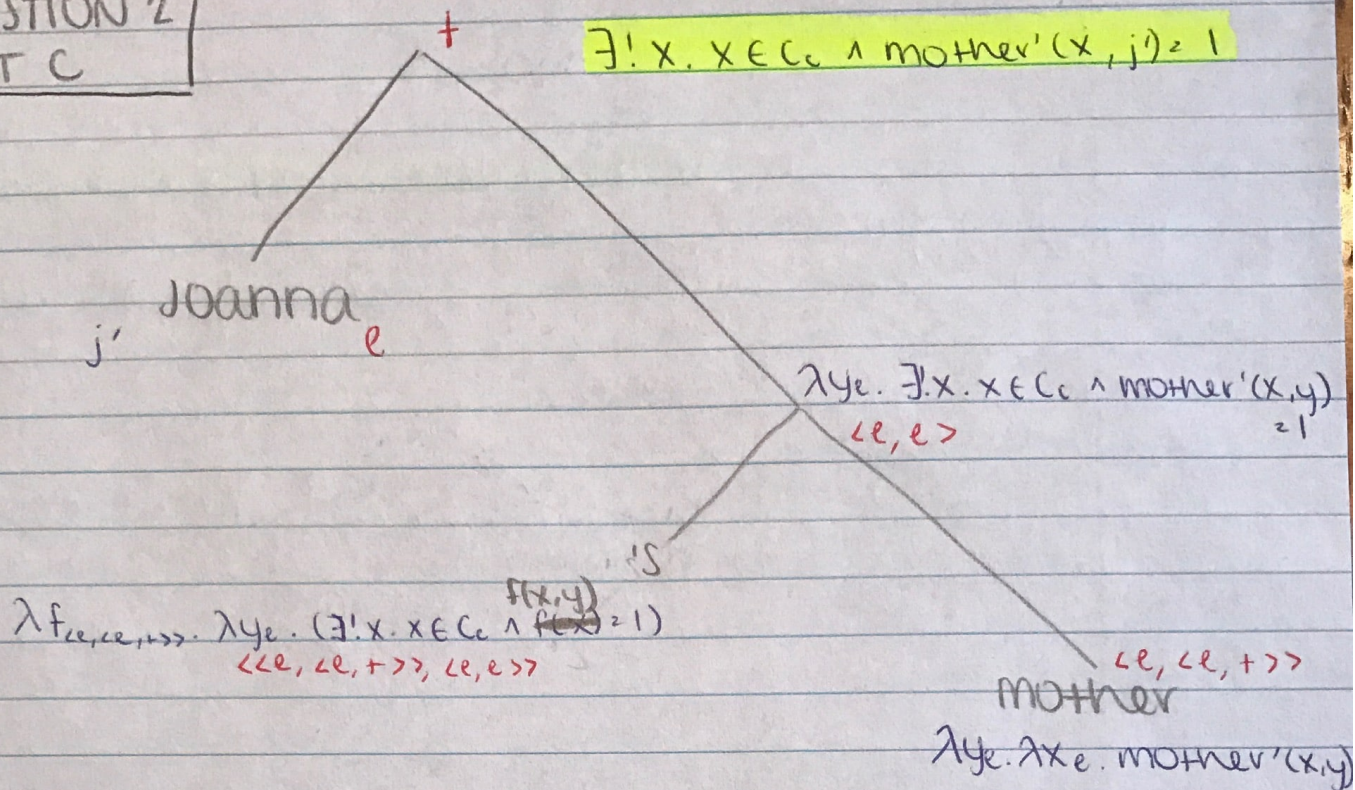 STION 2
T C
t
∃! x. x ∈ Cc ∧ mother'(x, j') = 1
Joanna
j'
e
λye. ∃!x. x ∈ Cc ∧ mother'(x,y)
= 1
<e, e>
's
f(x,y)
λf<e,<e,t>>. λye. (∃!x. x ∈ Cc ∧ f(x) = 1)
<<e, <e, t>>, <e, e>>
<e, <e, t>>
mother
λye. λxe. mother'(x,y)